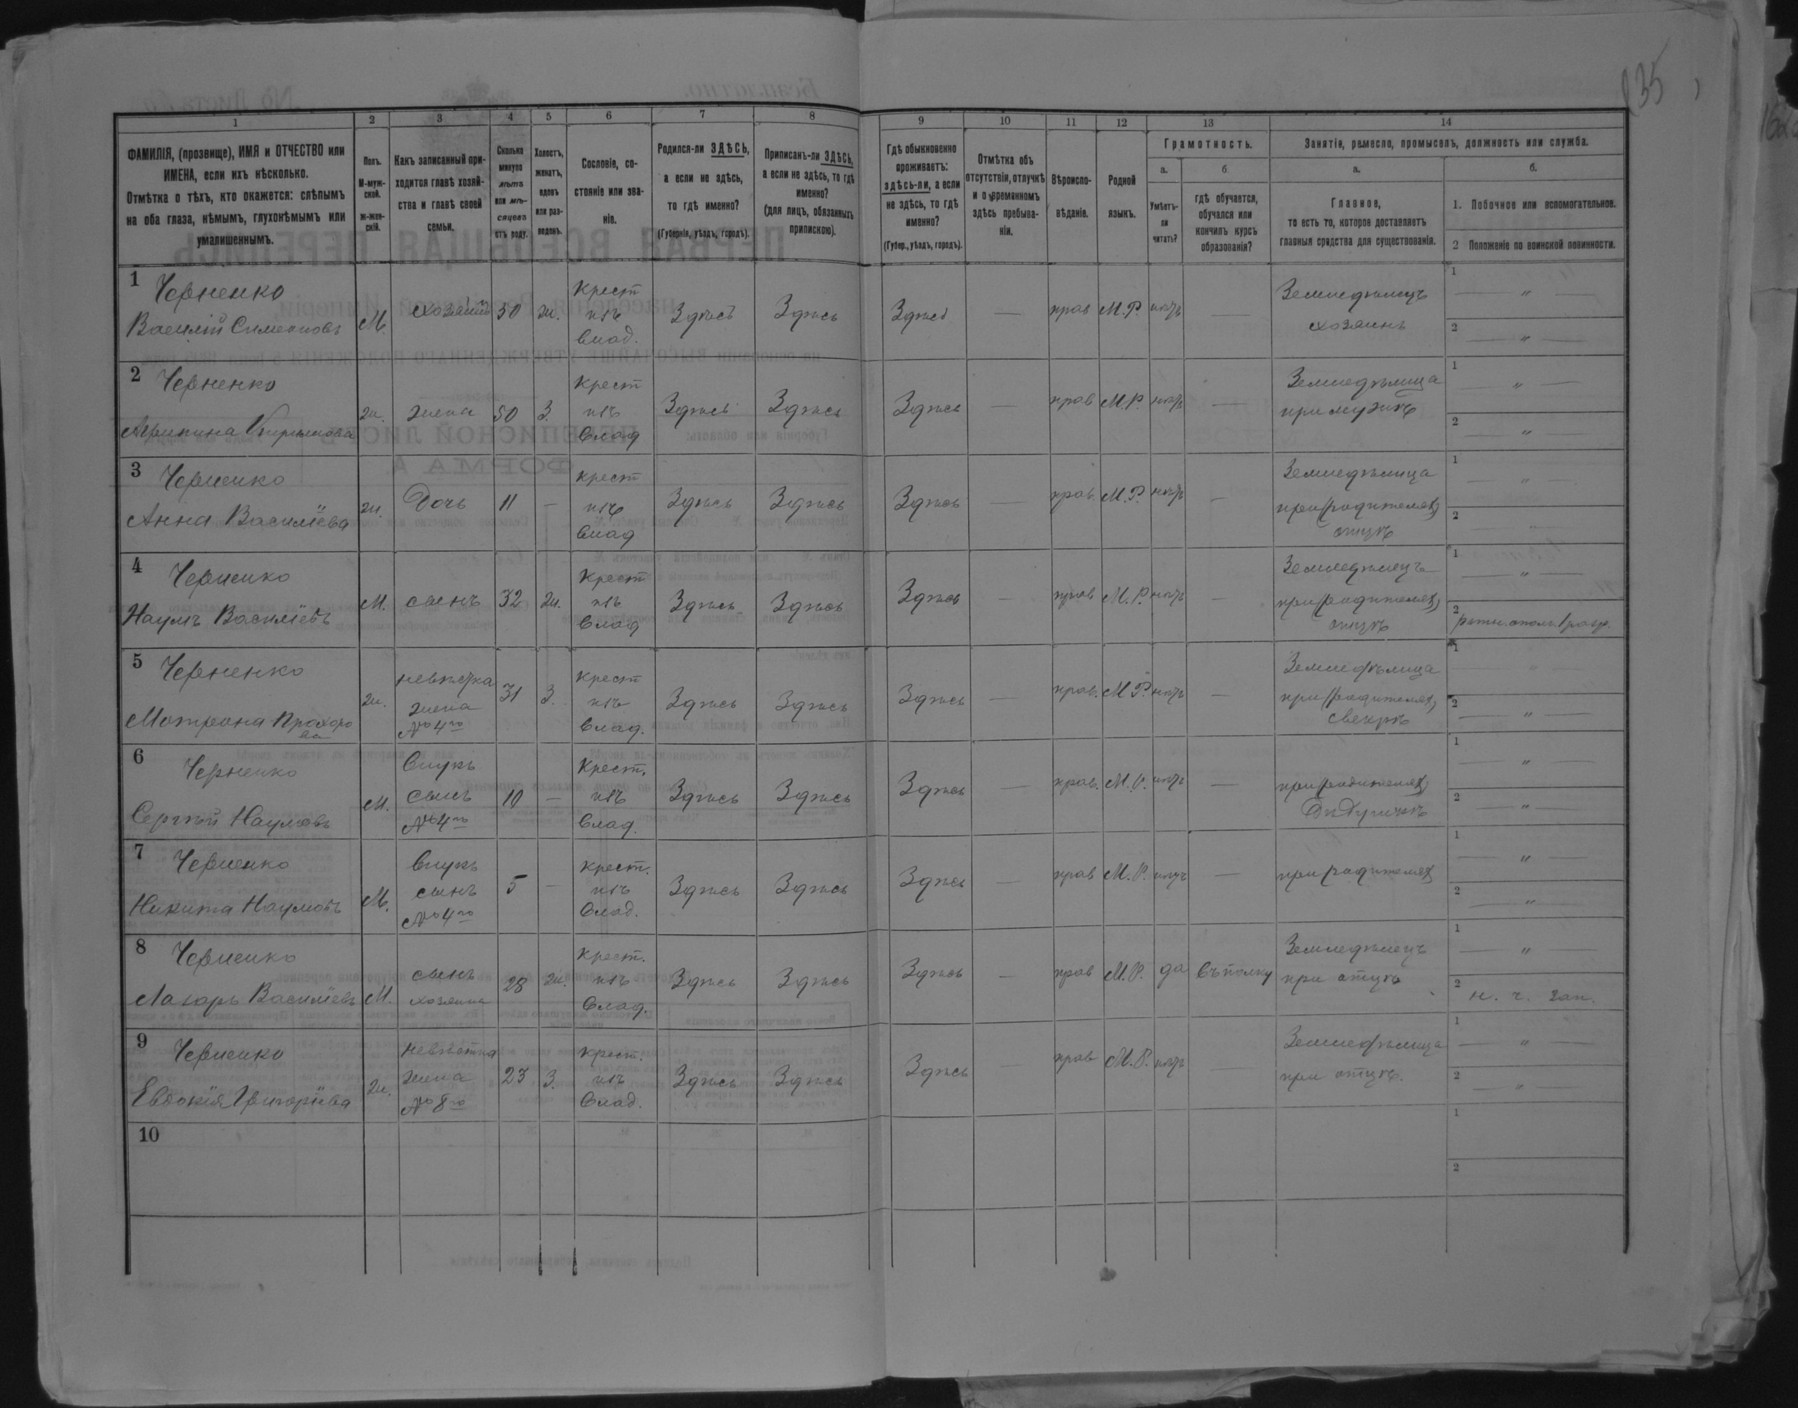 135
1 2 3 4 5 6 7 8 9 10 11 12 13 14
ФАМИЛІЯ, (прозвище), ИМЯ и ОТЧЕСТВО или ИМЕНА, если ихъ нѣсколько.
Отмѣтка о тѣхъ, кто окажется: слѣпымъ на оба глаза, нѣмымъ, глухонѣмымъ или умалишеннымъ.
Полъ.
М-муж-
ской.
Ж-жен-
скій.
Какъ записанный при-
ходится главѣ хозяй-
ства и главѣ своей
семьи.
Сколько
минуло
лѣтъ
или мѣ-
сяцевъ
отъ роду.
Холостъ,
женатъ,
вдовъ
или раз-
веденъ.
Сословіе, со-
стояніе или зва-
ніе.
Родился-ли ЗДѢСЬ,
а если не здѣсь,
то гдѣ именно?
(Губернія, уѣздъ, городъ).
Приписанъ-ли ЗДѢСЬ,
а если не здѣсь, то гдѣ
именно?
(для лицъ, обязанныхъ
припискою).
Гдѣ обыкновенно
проживаетъ:
здѣсь-ли, а если
не здѣсь, то гдѣ
именно?
(Губер., уѣздъ, городъ).
Отмѣтка объ
отсутствіи, отлучкѣ
и о временномъ
здѣсь пребыва-
ніи.
Вѣроиспо-
вѣданіе.
Родной
языкъ.
Грамотность.
а.
Умѣетъ-
ли
читать?
б.
гдѣ обучается,
обучался или
кончилъ курсъ
образованія?
Занятіе, ремесло, промыселъ, должность или служба.
а.
Главное,
то есть то, которое доставляетъ
главныя средства для существованія.
б.
1. Побочное или вспомогательное.
2 Положеніе по воинской повинности.
1 Черненко
Василій Симеоновъ
М. хозяинъ 50 ж. Крест изъ влад. Здѣсь Здѣсь Здѣсь — прав М.Р. нѣтъ — Земледѣлецъ хозяинъ 1 — " — 2 — " —
2 Черненко
Агрипина Кирьякова
ж. жена 50 З. Крест изъ влад Здѣсь Здѣсь Здѣсь — прав М.Р. нѣтъ — Земледѣлица при мужѣ 1 — " — 2 — " —
3 Черненко
Анна Василіева
ж. Дочь 11 — Крест изъ влад Здѣсь Здѣсь Здѣсь — прав. М.Р. нѣтъ — Земледѣлица при родителях отцѣ 1 — " — 2 — " —
4 Черненко
Наумъ Василіевъ
М. сынъ 32 ж. Крест изъ влад Здѣсь Здѣсь Здѣсь — прав М.Р. нѣтъ — Земледѣлецъ при родителях отцѣ 1 — " — 2 ратн. опол. 1 разр.
5 Черненко
Матрона Прохорова
ж. невѣстка жена №4го 31 З. Крест изъ влад. Здѣсь Здѣсь Здѣсь — прав. М.Р. нѣтъ — Земледѣлица при родителях свекрѣ 1 — " — 2 — " —
6 Черненко
Сергѣй Наумовъ
М. внукъ сынъ №4го 10 — Крест. изъ влад. Здѣсь Здѣсь Здѣсь — прав. М.Р. нѣтъ — при родителях 1 — " — 2 — " —
7 Черненко
Никита Наумовъ
М. внукъ сынъ №4го 5 — Крест. изъ влад. Здѣсь Здѣсь Здѣсь — прав М.Р. нѣтъ — при родителях 1 — " — 2 — " —
8 Черненко
Лазарь Василіевъ
М. сынъ хозяина 28 ж. Крест. изъ влад. Здѣсь Здѣсь Здѣсь — прав М.Р. да въ полку Земледѣлецъ при отцѣ 1 — " — 2 н. ч. зап.
9 Черненко
Евдокія Григоріева
ж. невѣстка жена №8го 23 З. Крест. изъ влад. Здѣсь Здѣсь Здѣсь — прав М.Р. нѣтъ — Земледѣлица при отцѣ. 1 — " — 2 — " —
10 1 2